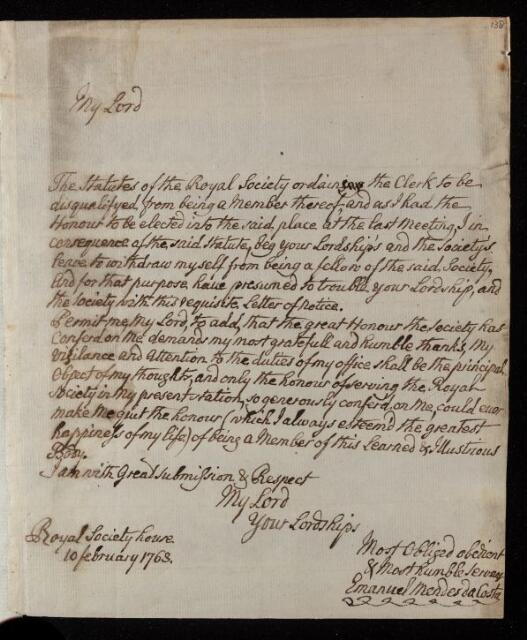 138
My Lord
The Statutes of the Royal Society ordain the Clerk to be
disqualifyed from being a Member thereof and as I had the
Honour to be elected into the said place at the last Meeting, I in
consequence of the said Statute, beg your Lordship's and the Society's
leave to withdraw myself from being a fellow of the said Society,
And for that purpose have presumed to trouble your Lordship, and
the Society with this requisite Letter of notice.
Permit me, My Lord, to add, that the great Honour the Society has
Conferd on Me demands my most gratefull and humble thanks, My
Vigilance and Attention to the duties of my office shall be the principal
Object of my thoughts, and only the honour of serving the Royal
Society in my present station, so generously conferd, on Me, could ever
make Me quit the honour (which I always esteemd the greatest
happiness of my life) of being a Member of this Learned & Illustrious
Body.
I am with Great Submission & Respect
My Lord
Your Lordships
Royal Society house
10 february 1763.
Most Obliged obedient
& Most humble Servant
Emanuel Mendes da Costa